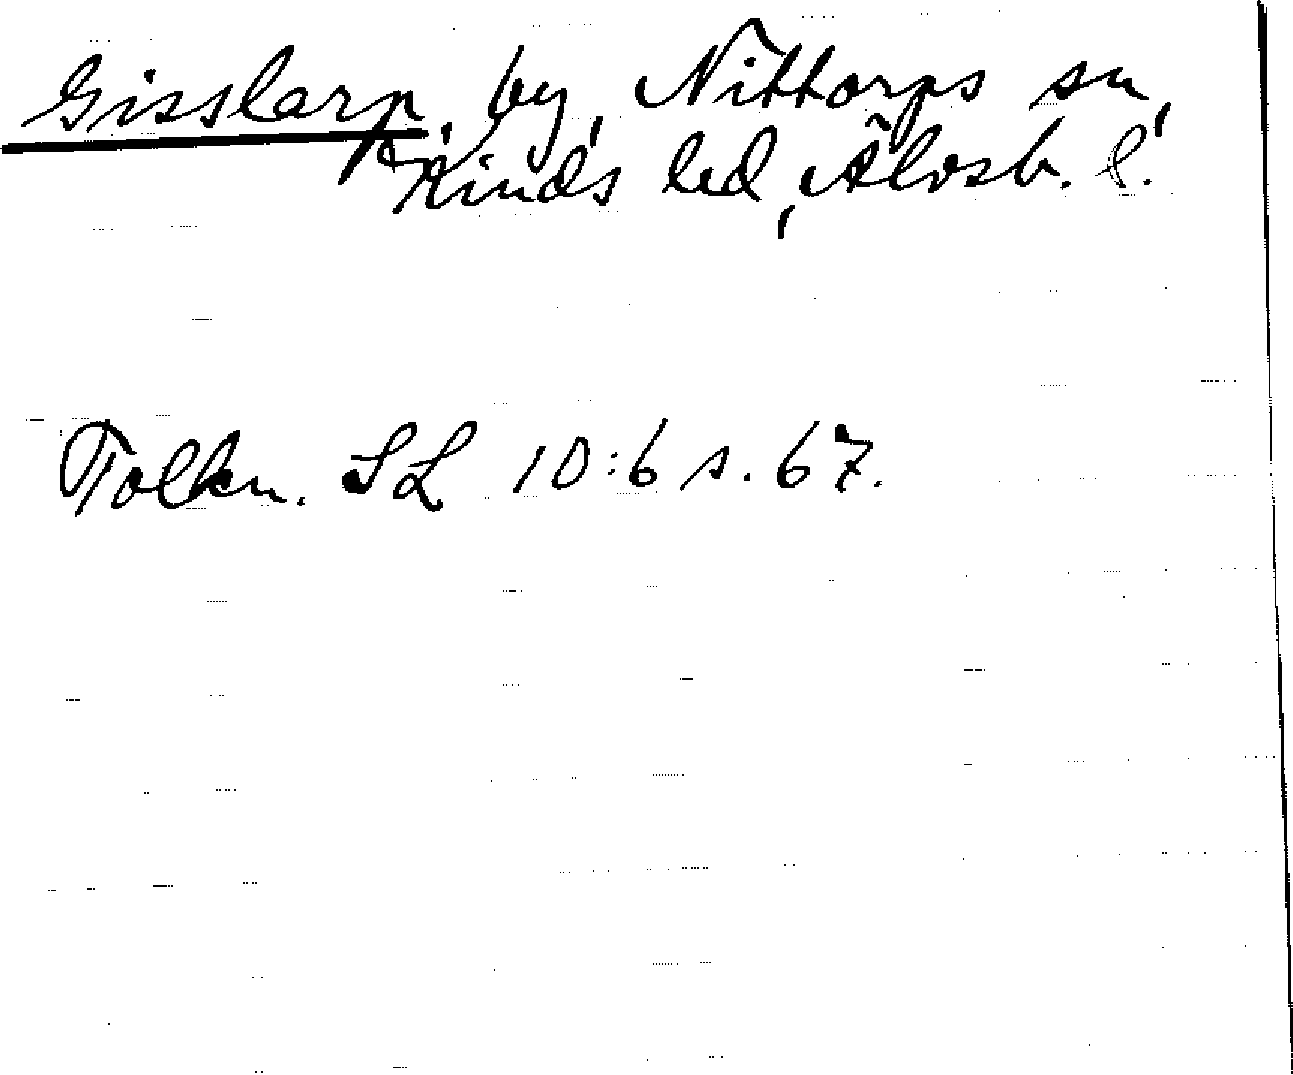 Gisslarp, by, Nittorps sn,
Kinds hd, Älvsb. l.
Tolkn. SL 10:6 s. 67.